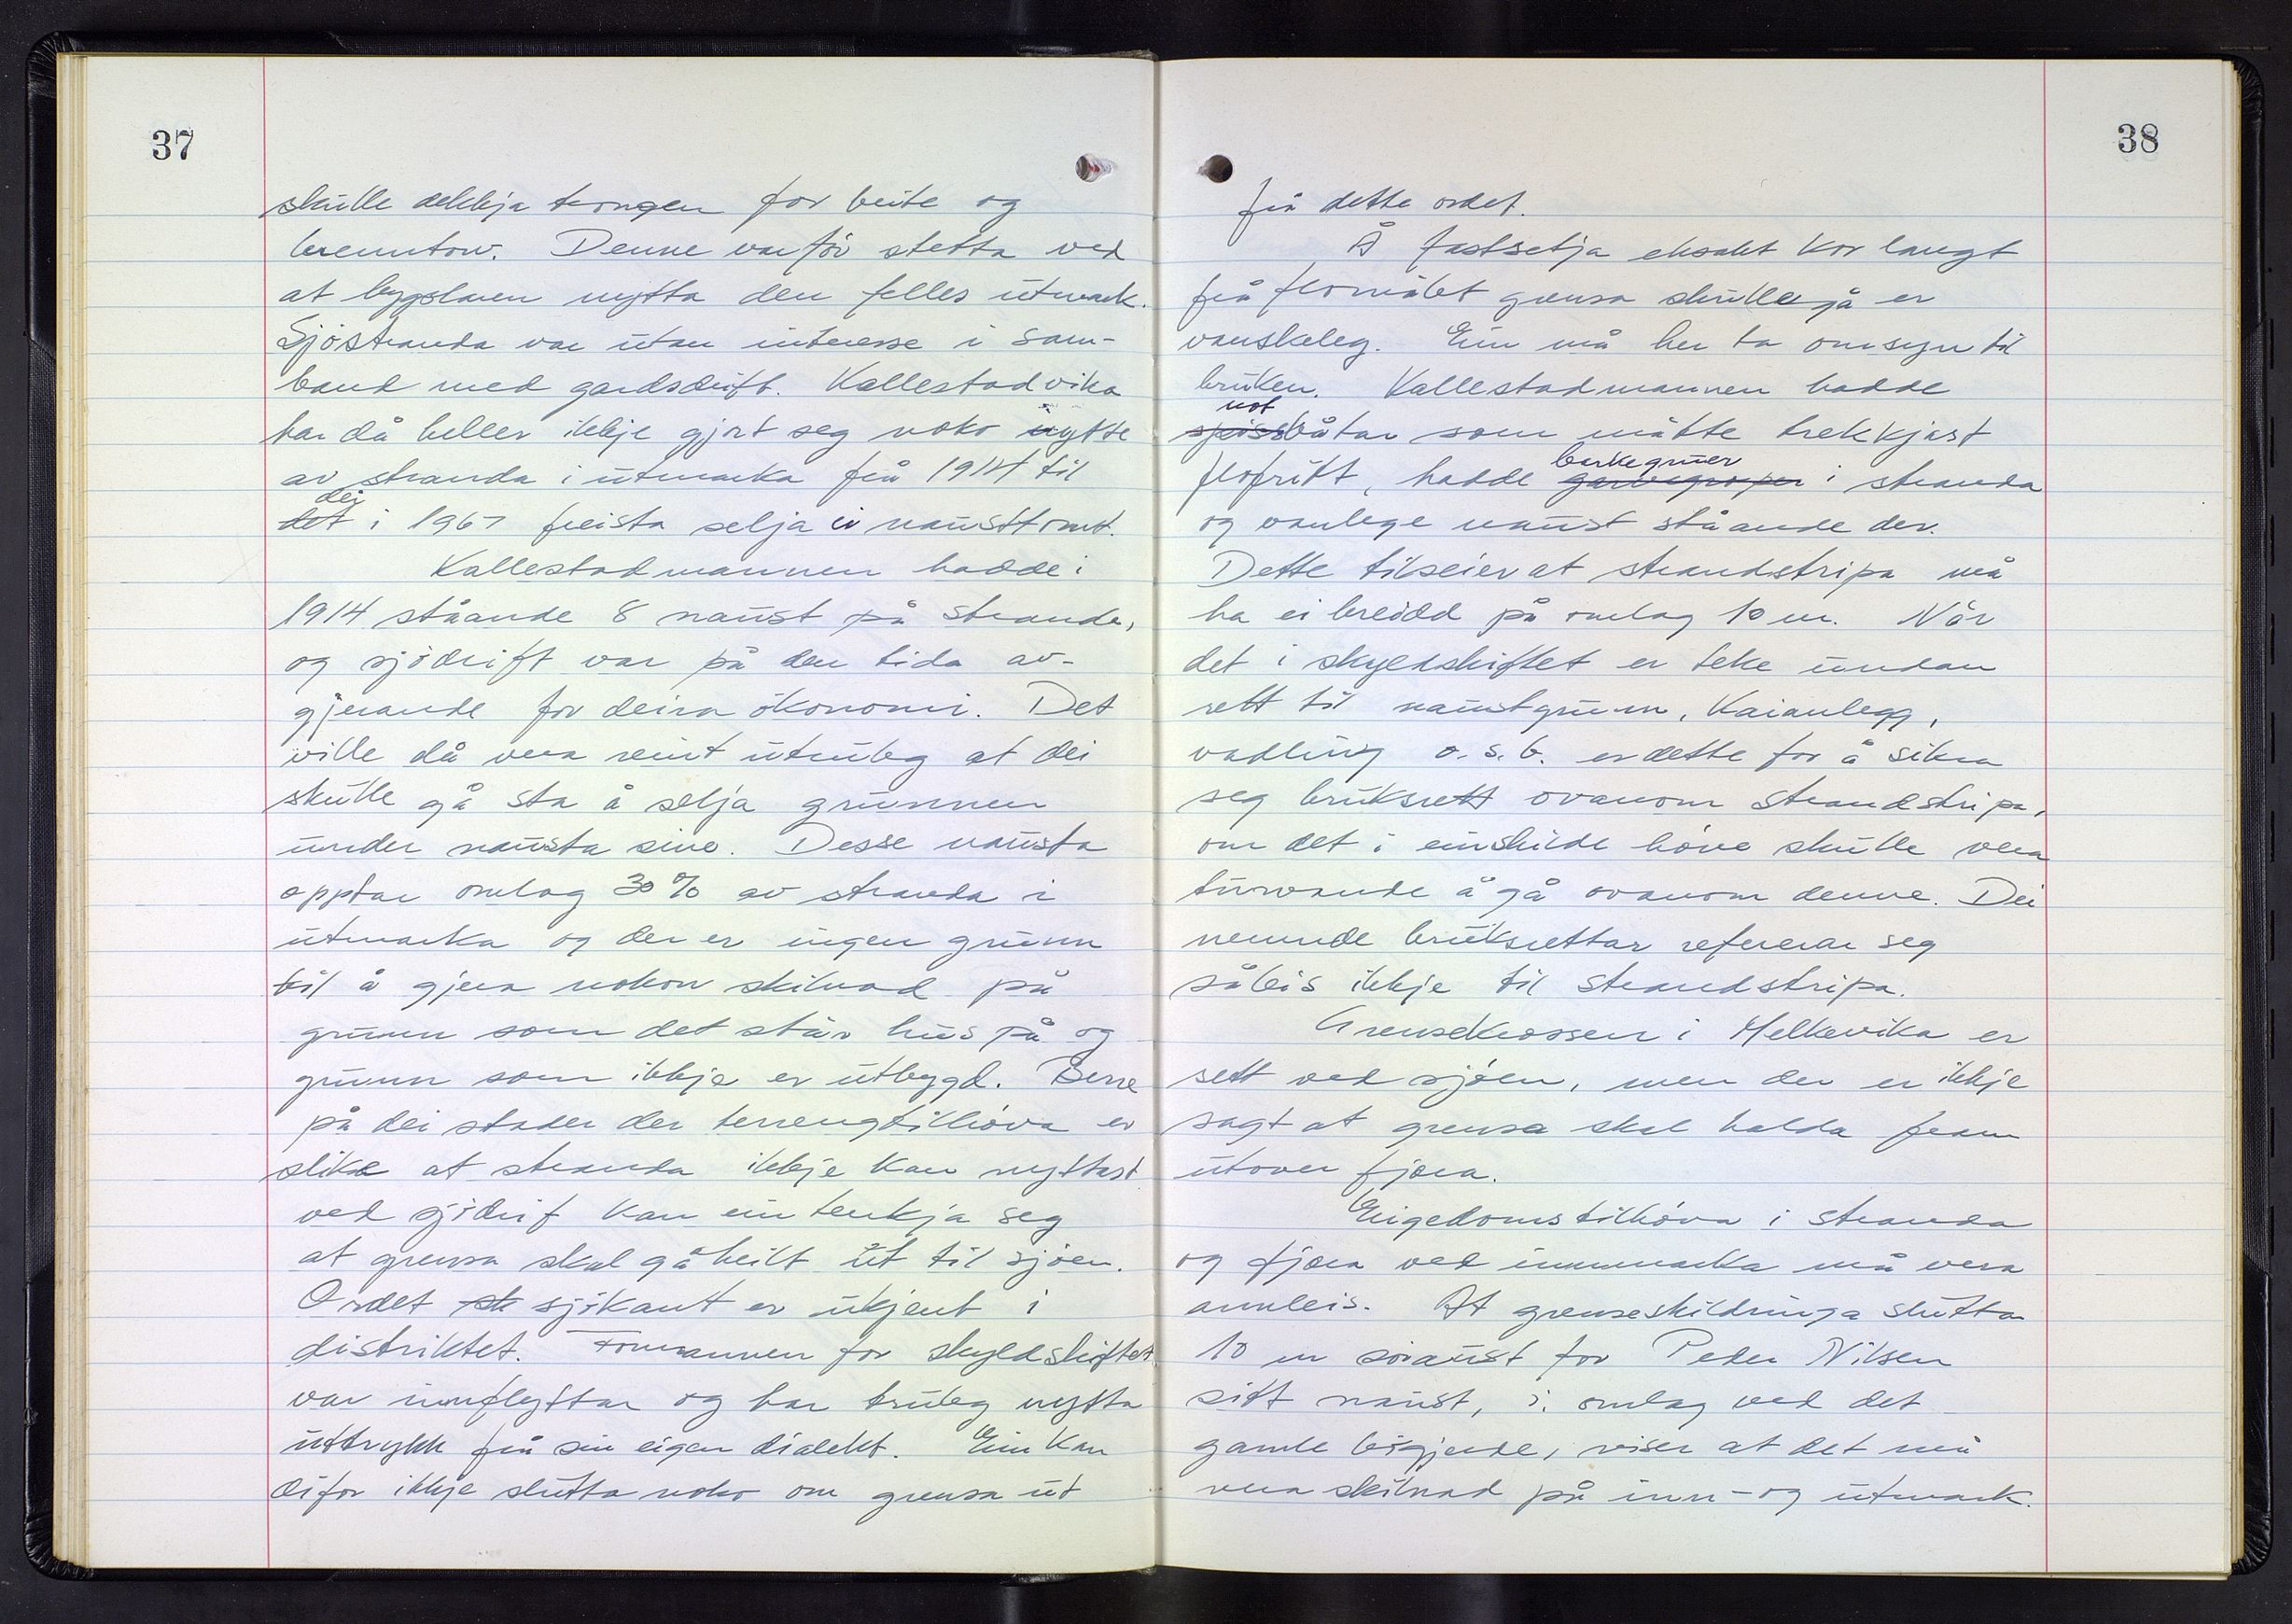 37
skulle dekkja trongen for beite og
brenntorv. Denne var før stetta ved
at bygslaren nytta den felles utmark.
Sjøstranda var utan interesse i sam-
band med gardsdrift. Kallestadvika
har då heller ikkje gjort seg noko nytte
av stranda i utmarka frå 1914 til
dei
det i 1967 freista selja ei nausttomt.
Kallestadmannen hadde i
1914 ståande 8 naust på stranda,
og sjødrift var på den tida av-
gjerande for deira økonomi. Det
ville då vera reint utruleg at dei
skulle gå sta å selja grunnen
under nausta sine. Desse nausta
opptar omlag 30 % av stranda i
utmarka og der er ingen grunn
til å gjera nokon skilnad på
grunn som det står hus på og
grunn som ikkje er utbygd. Berre
på dei stader der terrengtilhøva er
slike at stranda ikkje kan nyttast
ved sjødrif kan ein tenkja seg
at grensa skal gå heilt ut til sjøen.
Ordet sk sjøkant er ukjent i
distriktet. Formannen for skyldskiftet
var innflyttar og har truleg nytta
uttrykk frå sin eigen dialekt. Ein kan
difor ikkje slutta noko om grensa ut
38
frå dette ordet.
Å fastsetja eksakt kor langt
frå flomålet grensa skulle gå er
vanskeleg. Ein må her ta omsyn til
bruken. Kallestadmannen hadde
not
spissbåtar som måtte trekkjast
flofritt, hadde barkegruer
garvegroper i stranda
og vanlege naust ståande der.
Dette tilseier at strandstripa må
ha ei breidd på omlag 10 m. Når
det i skyldskiftet er teke undan
rett til naustgrunn, kaianlegg,
vadling o.s.b. er dette for å sikra
seg bruksrett ovanom strandstripa,
om det i einskilde høve skulle vera
turvande å gå ovanom denne. Dei
nemnde bruksrettar refererar seg
såleis ikkje til strandstripa.
Grensekrossen i Melkevika er
sett ved sjøen, men der er ikkje
sagt at grensa skal halda fram
utover fjøra.
Eigedomstilhøva i stranda
og fjøra ved innmarka må vera
annleis. At grenseskildringa sluttar
10 m søraust for Peder Nilsen
sitt naust, i. omlag ved det
gamle bøgjerde, viser at det må
vera skilnad på inn- og utmark.